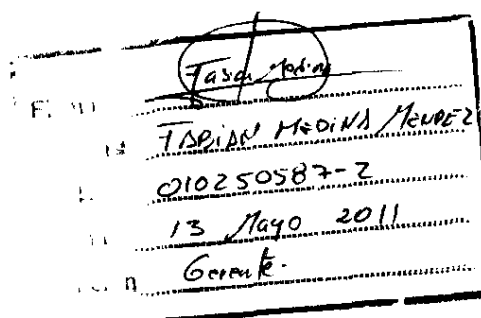 FABIAN MEDINA MENDEZ
010250587-2
13 Mayo 2011
Gerente.